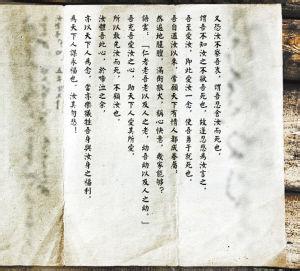 又恐汝不察吾衷，謂吾忍舍汝而死，
謂吾不知汝之不欲吾死也，故遂忍悲為汝言之。
吾至愛汝，即此愛汝一念，使吾勇于就死也。
吾自遇汝以來，常願天下有情人都成眷屬，
然遍地腥羶，滿街狼犬，稱心快意，幾家能夠？
語雲，「仁者老吾老以及人之老，幼吾幼以及人之幼。」
吾充吾愛汝之心，助天下人愛其所愛，
所以敢先汝而死，不顧汝也。
汝體吾此心，於啼泣之餘，
亦以天下人為念，當亦樂犧牲吾身與汝身之福利，
為天下人謀永福也。汝其勿悲！